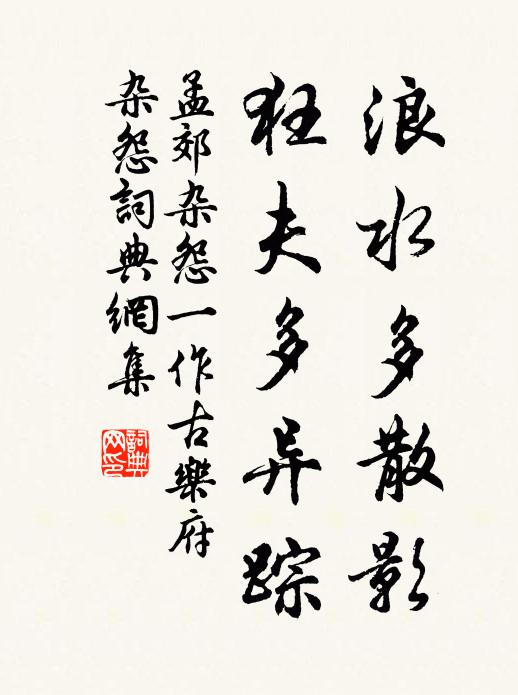 浪水多散影
狂夫多异踪
孟郊杂怨一作古樂府
杂怨詞典網集
詞典网印